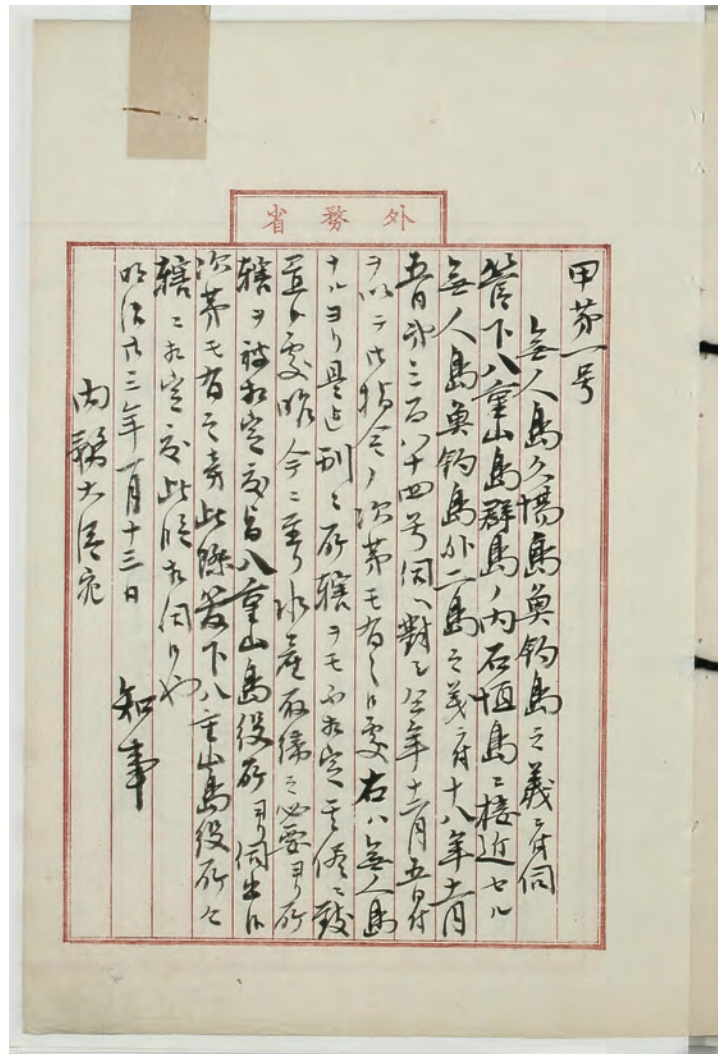 外務省
甲第一号
無人島久場島魚釣島之義ニ付伺
管下八重山島群島ノ内石垣島ニ接近セル
無人島魚釣島外二島之義ニ付十八年十一月
五日第三百八十四号伺ヘ対シ仝年十二月五日付
ヲ以テ御指令ノ次第モ有之候処右ハ無人島
ナルヨリ是迄別ニ所轄ヲモ不相定其儘ニ致
置候処昨今ニ至リ水産取締之必要ヨリ所
轄ヲ被相定度旨八重山島役所ヨリ伺出候
次第モ有之旁此際管下八重山島役所々
轄ニ相定度此段相伺候也
明治廿三年一月十三日
知事
内務大臣宛